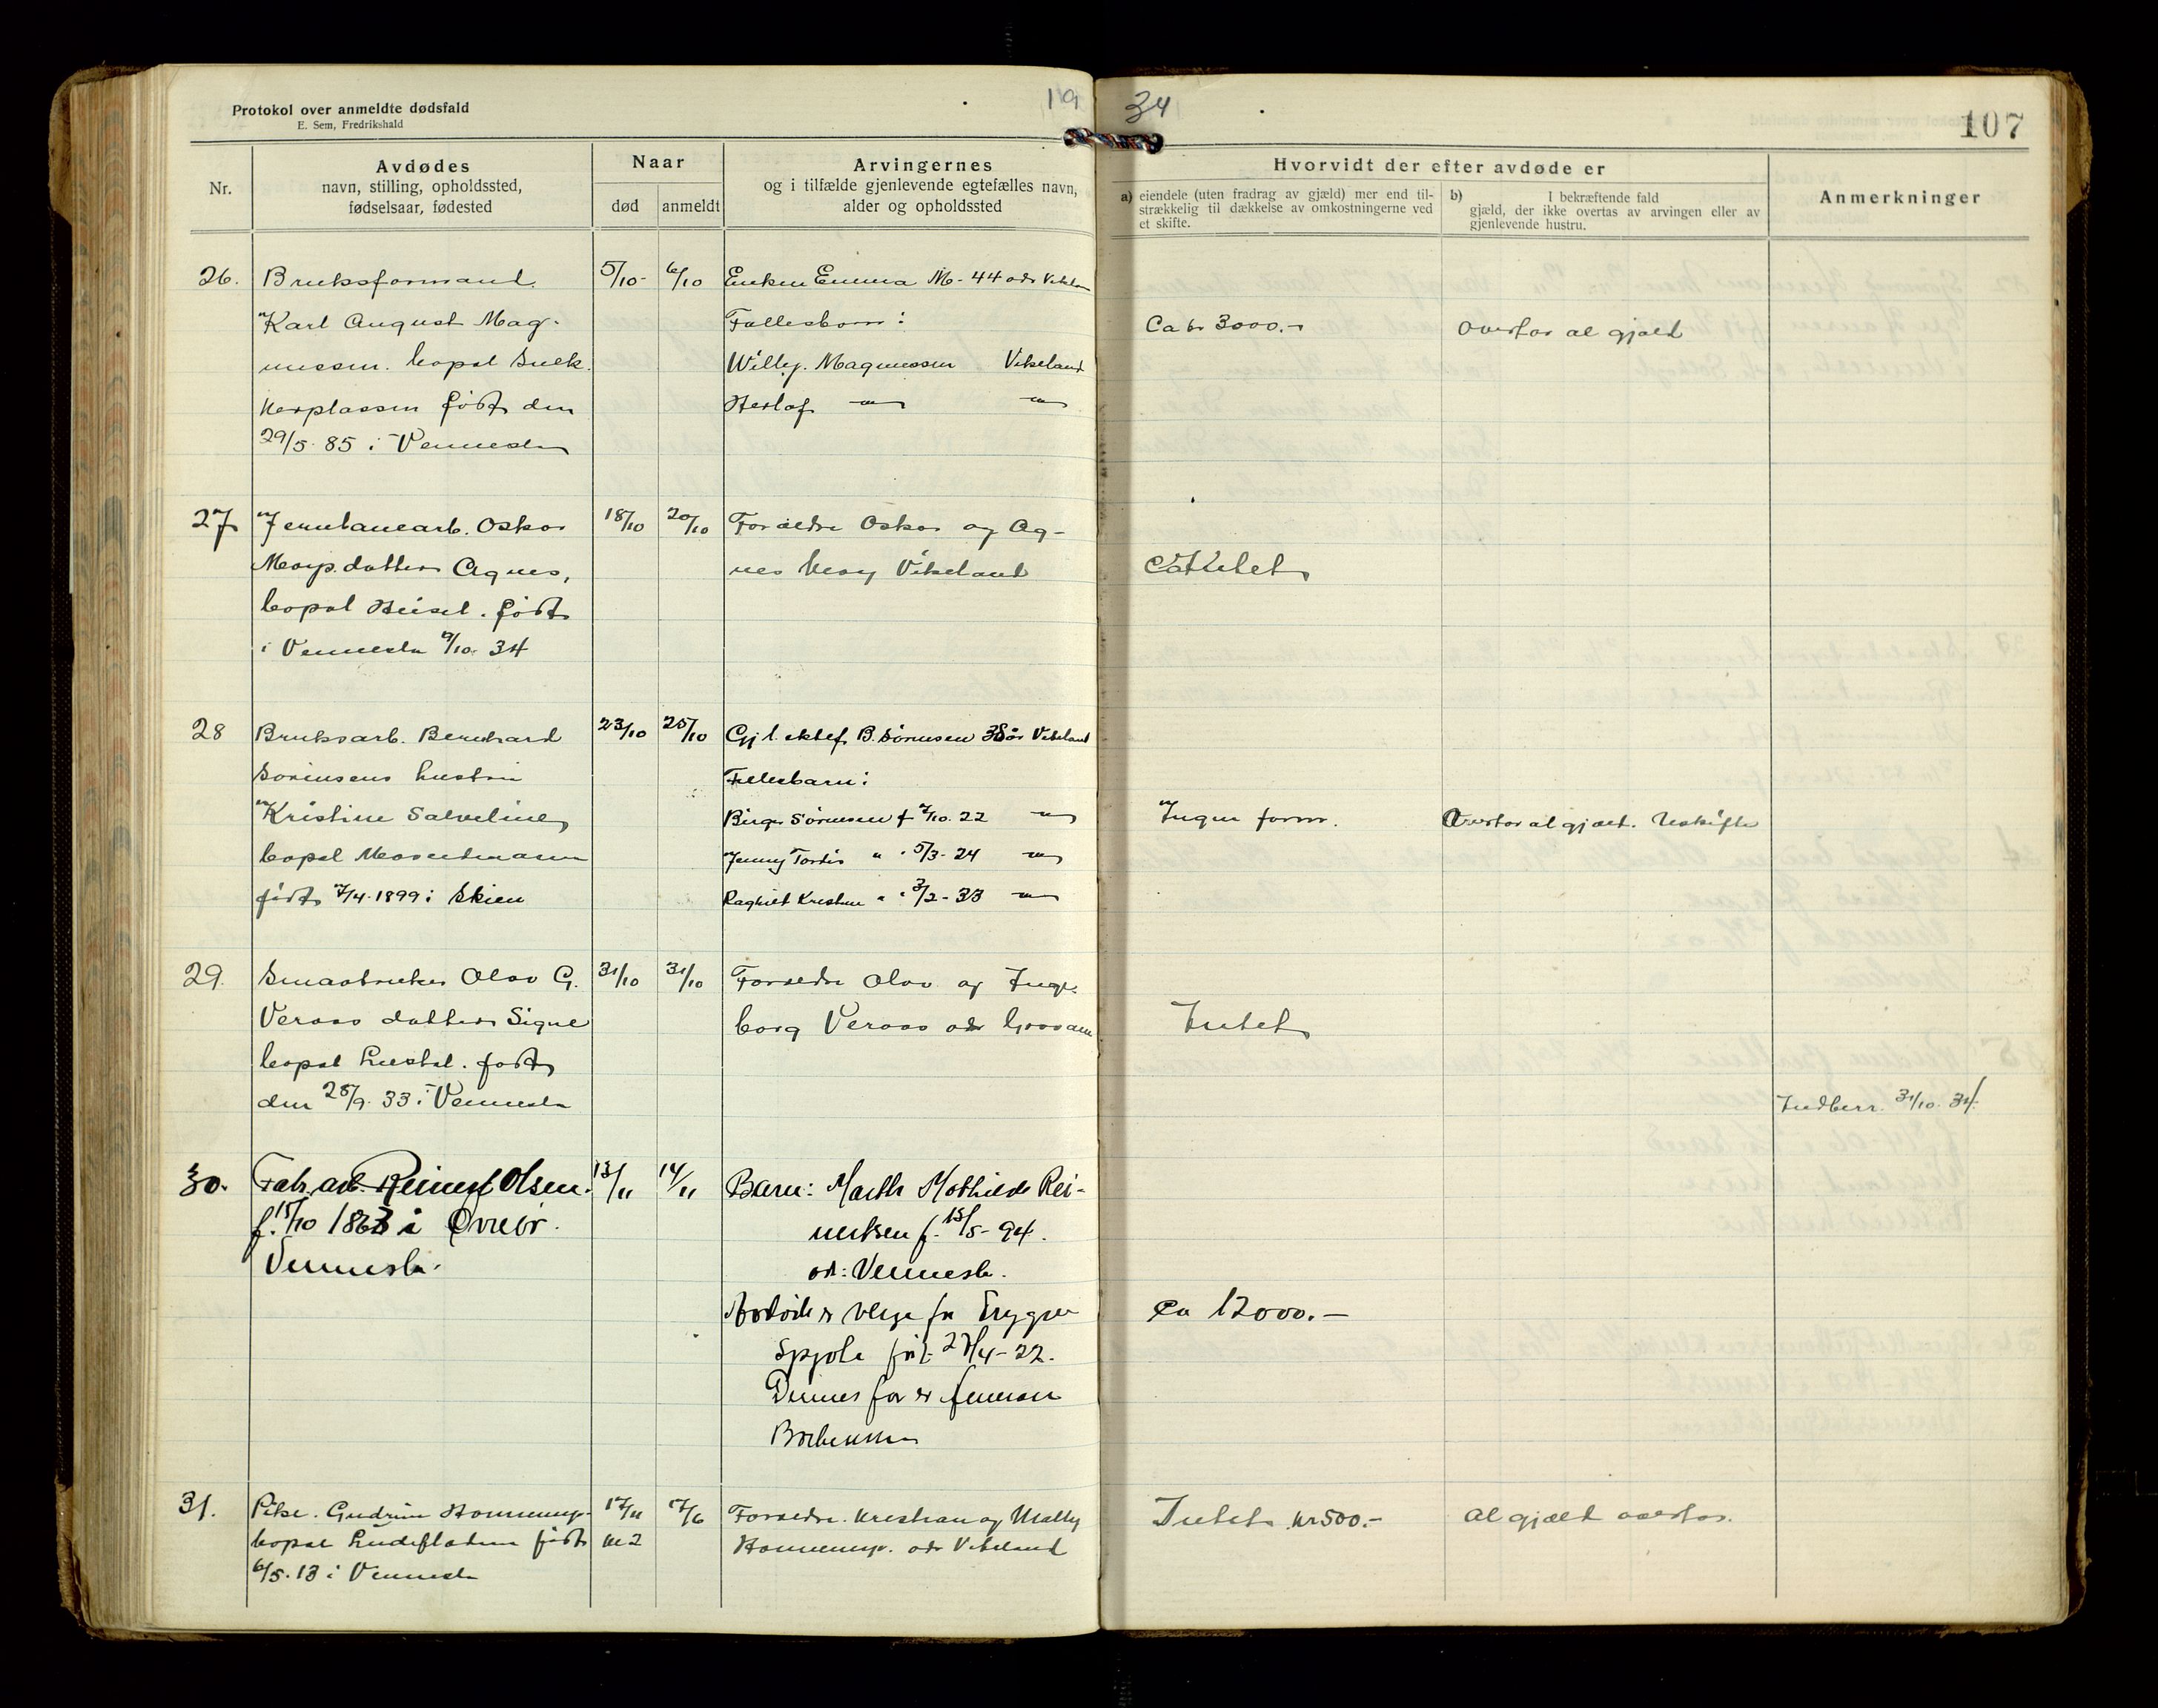 Protokol over anmeldte dødsfald
E. Sem, Fredrikshald
19 34
107
Nr.
Avdødes
navn, stilling, opholdssted,
fødselsaar, fødested
Naar
død
anmeldt
Arvingernes
og i tilfælde gjenlevende egtefælles navn,
alder og opholdssted
Hvorvidt der efter avdøde er
a) eiendele (uten fradrag av gjæld) mer end til-
strækkelig til dækkelse av omkostningerne ved
et skifte.
b) I bekræftende fald
gjæld, der ikke overtas av arvingen eller av
gjenlevende hustru.
Anmerkninger
26.
Bruksformand
Karl August Mag-
nussen. bopæl
født den
29/5-85 i Vennesla
5/10-
6/10
Enken Emma M- 44
Fællesbarn:
Willy. Magnussen Vikeland
Herlof
Ca kr 3000.-
overtar al gjæld
27
Jernbanearb. Oskar
datter Agnes,
bopæl Heisel. født
i Vennesla 9/10- 34
18/10
20/10
Forældre Oskar og Ag-
nes Vikeland
Intet
28
Bruksarb. Bernhard
Sørensens hustru
Kristine Salveline
bopæl Mosentmann
født 7/4-1899 i Skien
23/10
25/10
Gj l. ektef B. Sørensen 38 år Vikeland
Fellesbarn:
Birger Sørensen f 7/10. 22
Jenny Tordis " " 5/3-24
Ragnhild Kristine " " 3/2-33
Ingen form.
Overtar al gjæld. Uskifte
29.
Smaabruker Olav G.
Veraas datter Signe
bopæl født
den 28/9-33 i Vennesla
31/10
31/10
Forældre Olav og Inge-
borg Veraas
Intet
Indberr. 31/10-34
30.
Fab. arb. Reinert Olsen.
f. 15/10 1863 i Øvrebø.
Vennesla.
13/11
14/11
Barn: Marth Mathilde Rei-
nertsen f. 15/5-94.
Vennesla.
Avdøde er verge for Trygve
født 27/4-22.
Dennes far er
Ca 12000.-
31.
Pike. Gudrun Honnemyr
bopæl født
6/5-13 i Vennesla
17/11
kl 2
17/6
Forældre. Kristian og Mally
Honnemyr. Vikeland
Intet kr 500.-
al gjæld overtar.